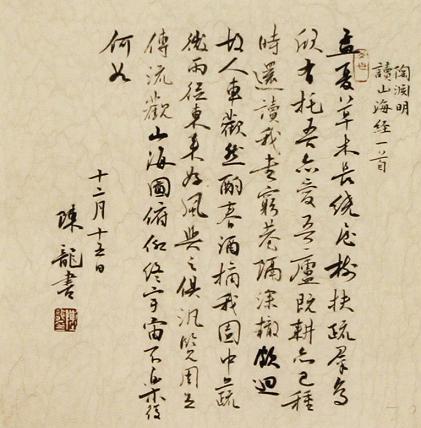 陶渊明
讀山海经一首
孟夏草木长绕屋树扶疏群鸟
欣有托吾亦爱吾廬既耕亦已種
時還讀我书窮巷隔深辙頗迴
故人車歡然酌春酒摘我園中蔬
微雨從東来好風與之俱汎覽周王
傳流觀山海圖俯仰终宇宙不乐復
何如
十二月十五日
陳龍書